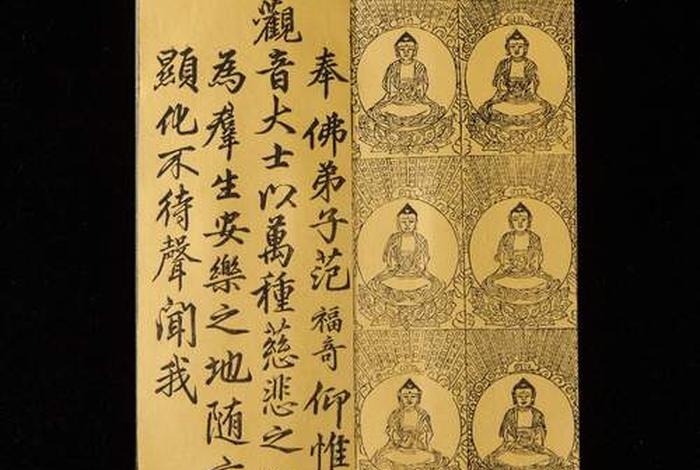 奉佛弟子范福奇仰惟
觀音大士以萬種慈悲之
為羣生安樂之地随
顯化不待聲聞我